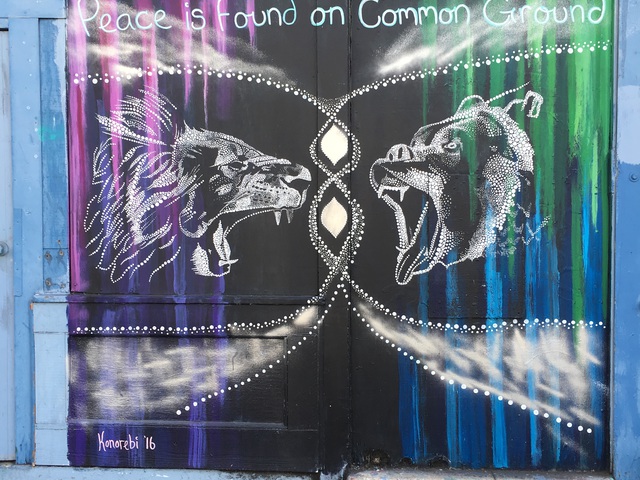 Peace is found on Common Ground
Konorebi '16